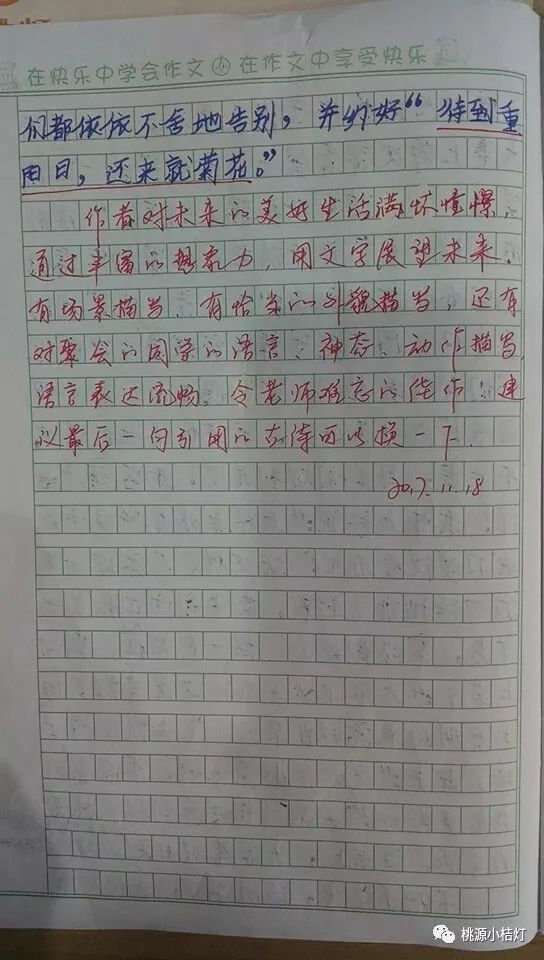 在快乐中学会作文 在作文中享受快乐
们都依依不舍地告别，并约好“待到重
阳日，还来就菊花。”
作者对未来的美好生活满怀憧憬，
通过丰富的想象力，用文字展望未来。
有场景描写，有恰当的外貌描写，还有
对聚会的同学的语言、神态、动作描写，
语言表达流畅。令老师难忘的佳作。建
议最后一句引用的古诗可以换一下。
2017.11.18
桃源小桔灯